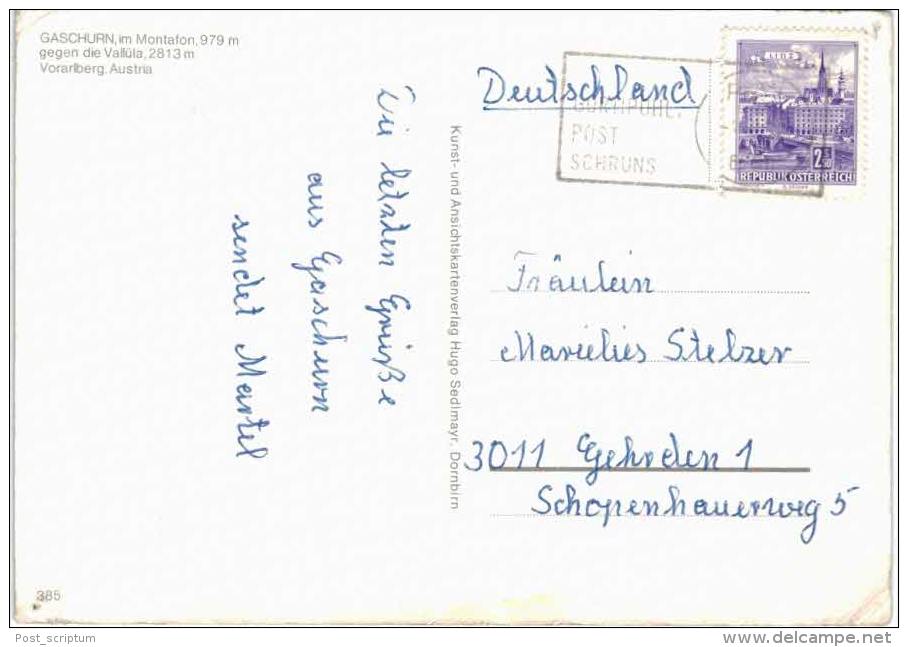 GASCHURN, im Montafon, 979 m
gegen die Vallüla, 2813 m
Vorarlberg, Austria
Die letzten Grüße
aus Gaschurn
sendet Martel
Kunst- und Ansichtskartenverlag Hugo Sedlmayr, Dornbirn
Deutschland
POST
SCHRUNS
LINZ
2.50
REPUBLIK ÖSTERREICH
Fräulein
Marielies Stelzer
3011 Gehrden 1
Schopenhauerweg 5
385
Post_scriptum
www.delcampe.net